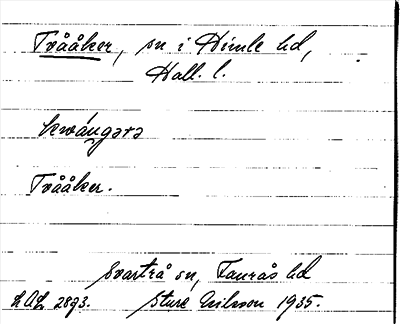 Tvååker, sn i Himle hd,
Hall. l.
Tvååker.
Svartrå sn, Faurås hd
LAL 2893. Sture Nilsson 1935.